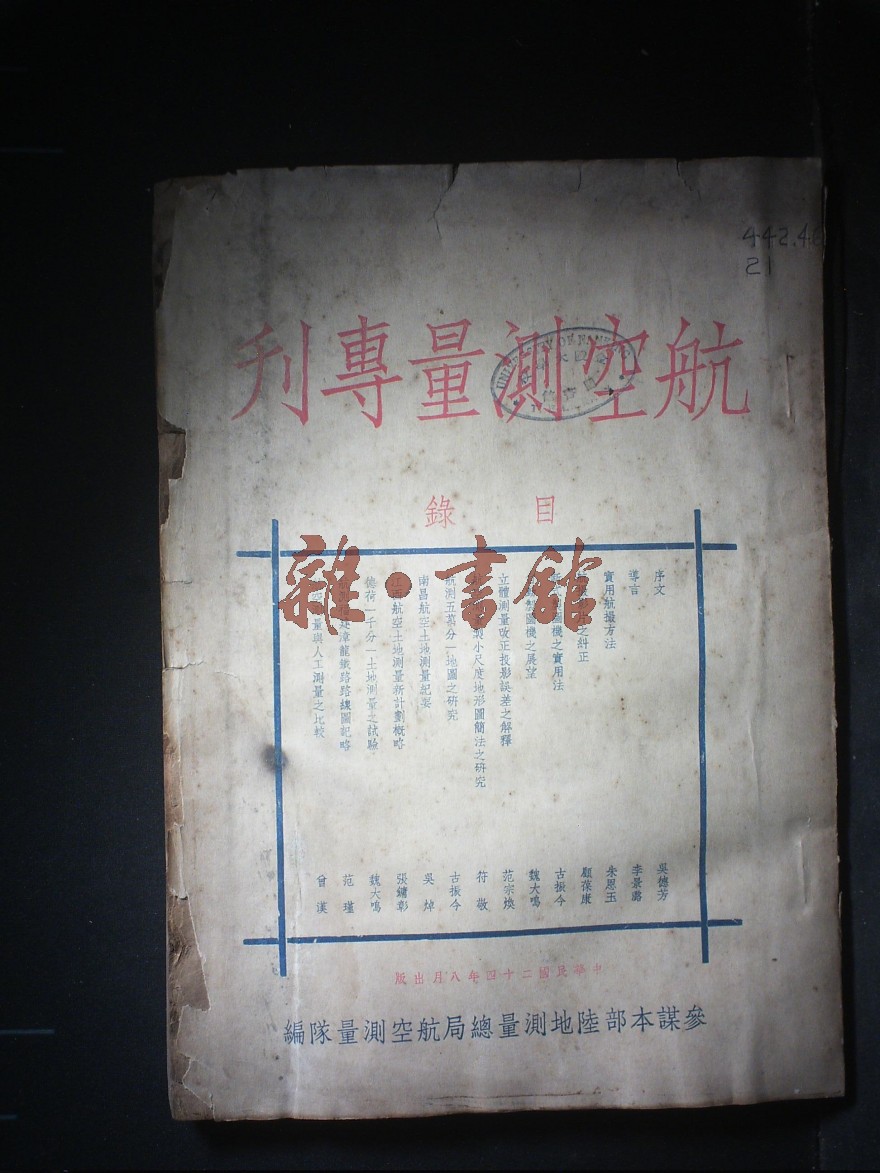 442.46
21
航空測量專刊
UNIVERSITY OF NANKING
目錄
雜·書館
序文 吳德芳
導言 李景潞
實用航撮方法 朱恩玉
之糾正 顧葆康
圖機之實用法 古振今
製圖機之展望 魏大鳴
立體測量改正投影誤差之解釋 范宗煥
製小尺度地形圖簡法之研究 符敬
航測五萬分一地圖之研究 古振今
南昌航空土地測量紀要 吳焯
江西航空土地測量新計劃概略 張鏞彰
德荷一千分一土地測量之試驗 魏大鳴
漳龍鐵路路線圖記略 范瑾
空測量與人工測量之比較 曾漢
中華民國二十四年八月出版
參謀本部陸地測量總局航空測量隊編